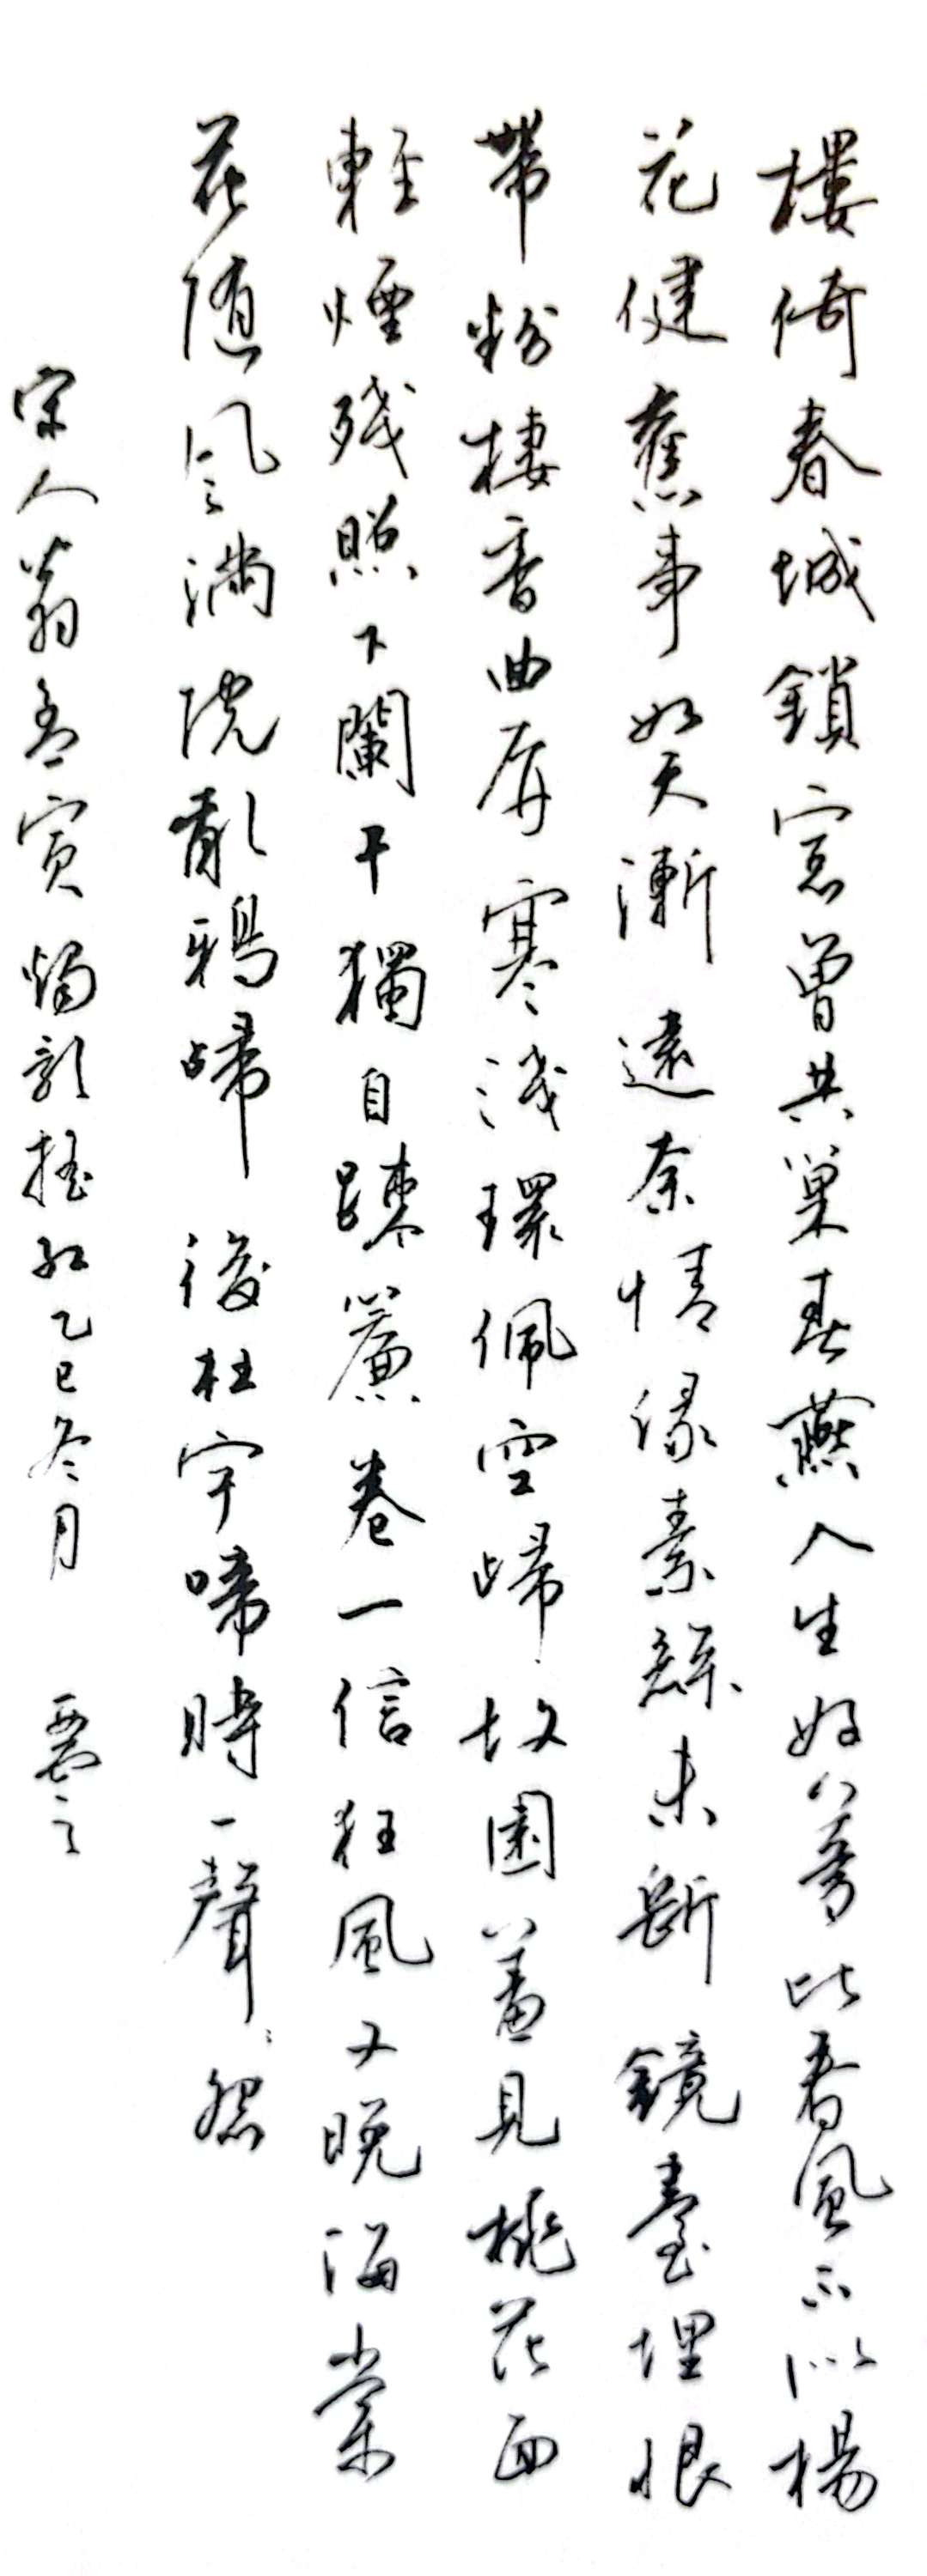 樓倚春城鎖窓曾共巢春燕人生好夢比春風不似楊
花健舊事如天漸遠奈情緣素絲未斷鏡臺埋恨
帶粉棲香曲屏寒淺環佩空歸故園羞見桃花面
輕煙殘照下闌干獨自疎簾卷一信狂風又晚海棠
花随風滿院亂鴉歸後杜宇啼時一聲〻怨
宋人翁孟寅燭影搖紅乙巳冬月